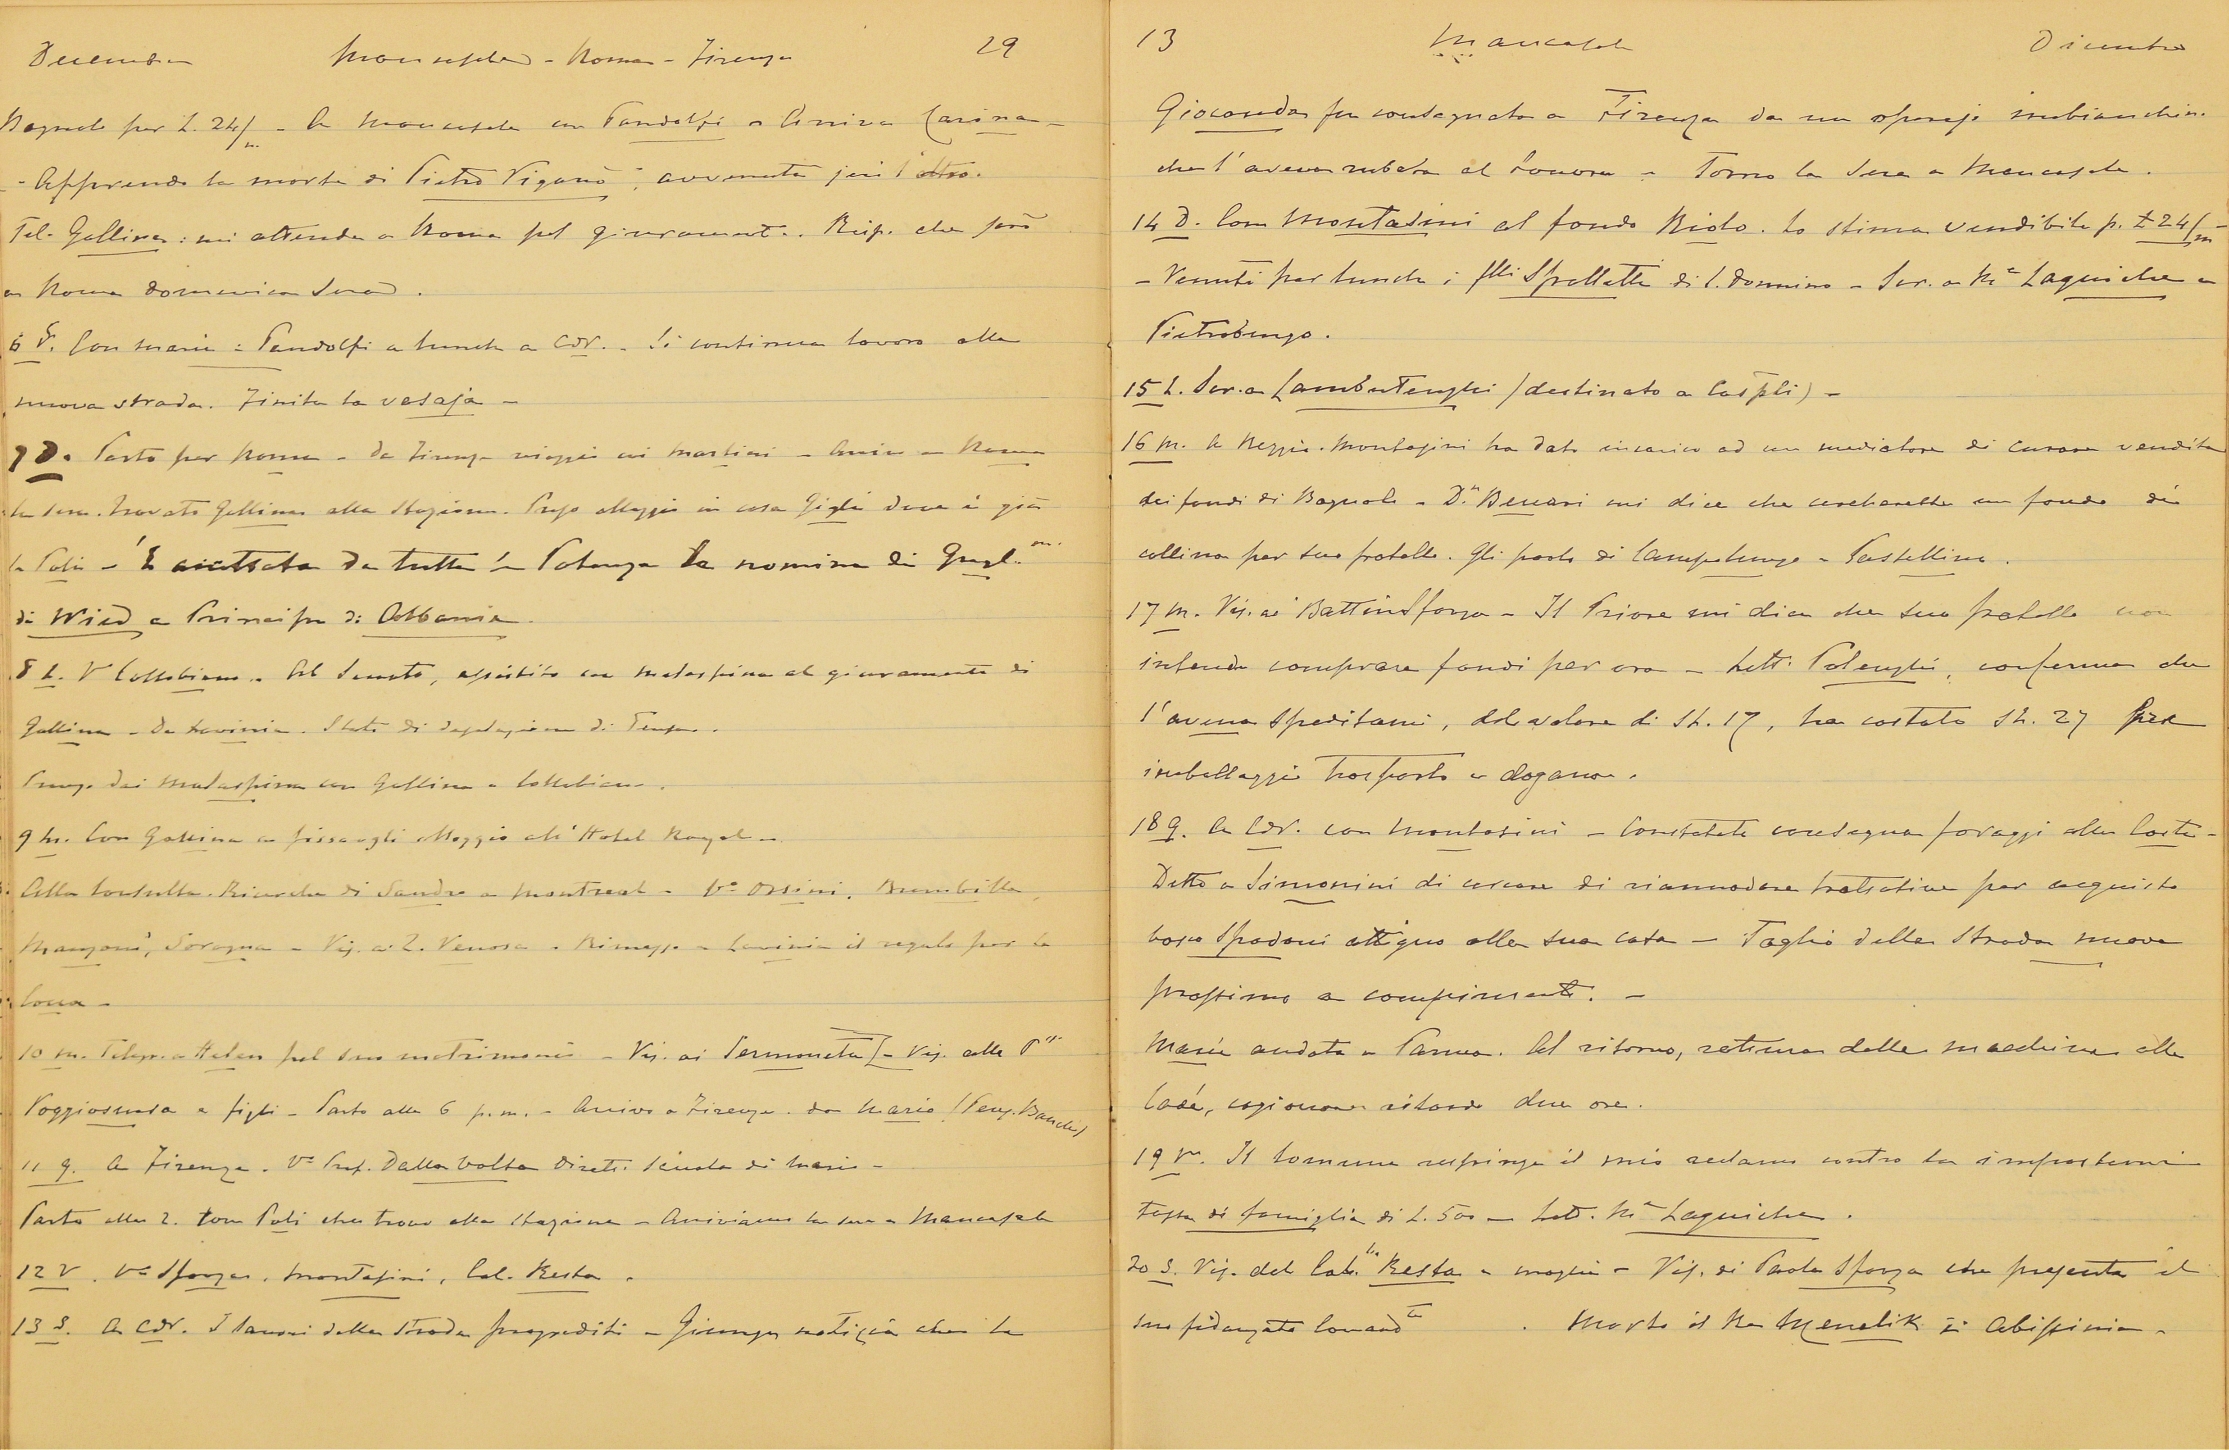 Dicembre Mancasale - Roma - Firenze 29
Bagnolo per L. 24/m - A Mancasale con Pandolfi - Arriva Carina -
- Apprendo la morte di Pietro Viganò, avvenuta jeri l'altro.
Tel. Gallina: mi attende a Roma pel giuramento. Risp. che sarò
a Roma domenica sera.
6 S. Con Maria e Pandolfi a lunch a CdV. - Si continua lavoro alla
nuova strada. Finita la vasaja -
7 D. Parto per Roma - Da Firenze viaggio coi Martini - Arrivo a Roma
la sera. Trovato Gallina alla stazione. Preso alloggio in casa Gigli dove è già
la Poli - È accettata da tutte le Potenze la nomina di Gugl.mo
di Wied a Principe di Albania.
8 L. Va Collobiano. Al Senato, assistito con Malaspina al giuramento di
Gallina - Da Lavinia.
Pranzo dai Malaspina con Gallina e Collobiano.
9 M. Con Gallina a fissargli alloggio all'Hotel Royal -
Alla Consulta. Ricerche di Sandro a Montreal - Va Orsini, Brambilla,
Manzoni, Soragna - Vis. ai Z. Venosa - Rimesso a Lavinia il regalo per la

10 M. Telegr. a Helen pel suo matrimonio - Vis. ai Sermoneta - Vis. alla Pssa
Poggiosuasa e figli - Parto alle 6 p.m. - Arrivo a Firenze. da Mario (Pens. Banchi)
11 G. A Firenze. Va Prof. Dalla Volta Dirett. Scuola di Mario -
Parto alle 2. con Poli che trovo alla stazione - Arriviamo la sera a Mancasale
12 V. Va Sforza, Montasini, Col. Resta.
13 S. A CdV. I lavori della strada progrediti - Giunge notizia che la
13 Mancasale Dicembre
Gioconda fu consegnata a Firenze da un operajo imbianchino
che l'aveva rubata al Louvre - Torno la sera a Mancasale.
14 D. Con Montasini al fondo Riolo. Lo stima vendibile p. L 24/m -
- Venuti per lunch i flli Spalletti di S. Donnino - Scr. a Ma Laguiche a
Pietroburgo.
15 L. Scr. a Lambertenghi (destinato a Costpli) -
16 M. A Reggio. Montasini ha dato incarico ad un mediatore di curare vendita
dei fondi di Bagnolo - Dr Benari mi dice che cercherebbe un fondo di
collina per suo fratello. Gli parlo di Campolungo - Castellina.
17 M. Vis. ai Battin Sforza - Il Priore mi dice che suo fratello non
intende comprare fondi per ora - Lett. Polenghi, conferma che
l'avena speditami, del valore di Sh. 17, ha costato Sh. 27 per
imballaggio trasporto e dogana.
18 G. A CdV. con Montasini - Constatata consegna foraggi alla Costa -
Detto a Simonini di cercare di riannodare trattative per acquisto
bosco Spadoni attiguo alla sua casa - Taglio della Strada nuova
prossimo a compimento. -
Maria andata a Parma. Al ritorno, rottura della macchina alla
Cadè, cagionano ritardo due ore.
19 V. Il Comune respinge il mio reclamo contro la impostami
tassa di famiglia di L. 500 - Lett. Ma Laguiche.
20 S. Vis. del Col. Resta e moglie - Vis. di Paola Sforza che presenta il
suo fidanzato . Morto il Re Menelik di Abissinia -